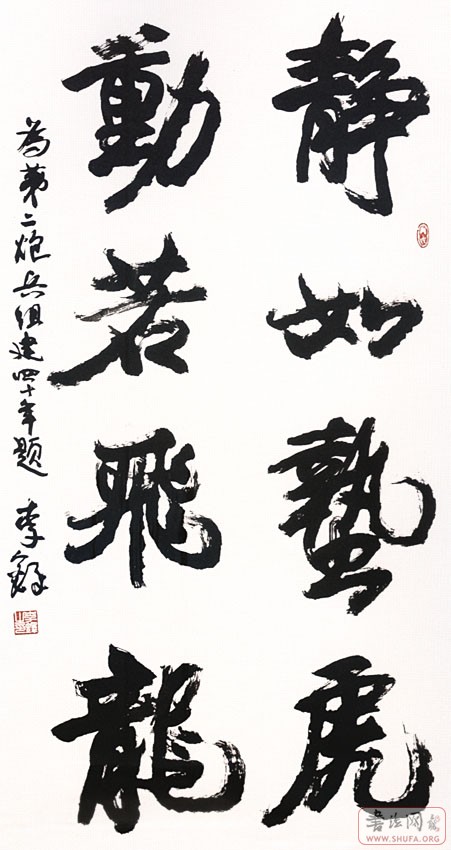 静如蟄虎
動若飛龍
為第二炮兵组建四十年题 李鐸
書法网
WWW.SHUFA.ORG